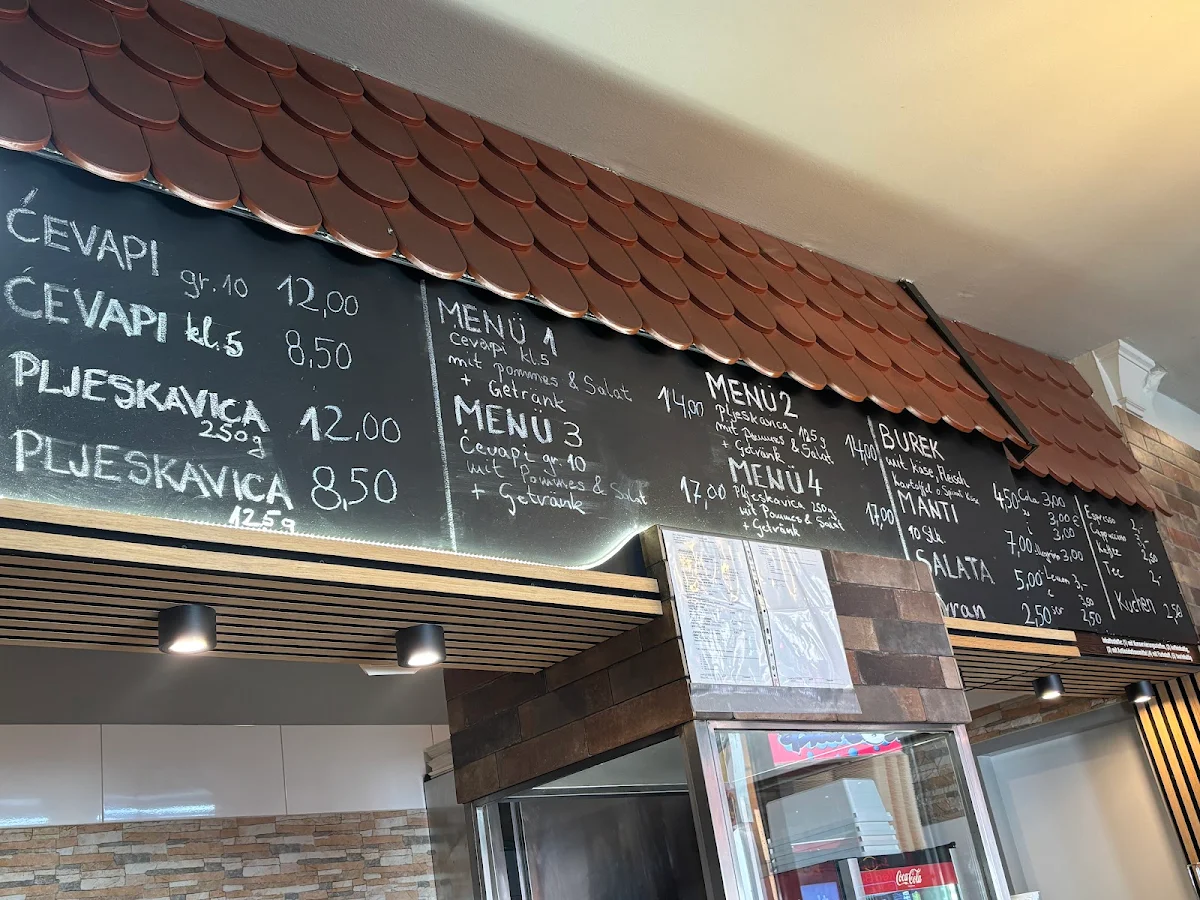 ĆEVAPI gr.10 12,00
ĆEVAPI kl.5 8,50
PLJESKAVICA 250g 12,00
PLJESKAVICA 125g 8,50
MENÜ 1
Ćevapi kl.5
mit pommes & Salat
+ Getränk 14,00
MENÜ 3
Ćevapi gr.10
mit Pommes & Salat
+ Getränk 17,00
MENÜ 2
Pljeskavica 125g
mit Pommes & Salat
+ Getränk 14,00
MENÜ 4
Pljeskavica 250g
mit Pommes & Salat
+ Getränk 17,00
BUREK
mit Käse, Fleisch
kartoffel o Spinat Käse 4,50
MANTI
10 Stk. 7,00
SALATA 5,00
2,50
Cola 3,00
3,00 €
3,00
3,00
Espresso 2,-
Cappuccino
Kaffee 2,50
Tee 2,-
Kuchen 2,50
Coca-Cola